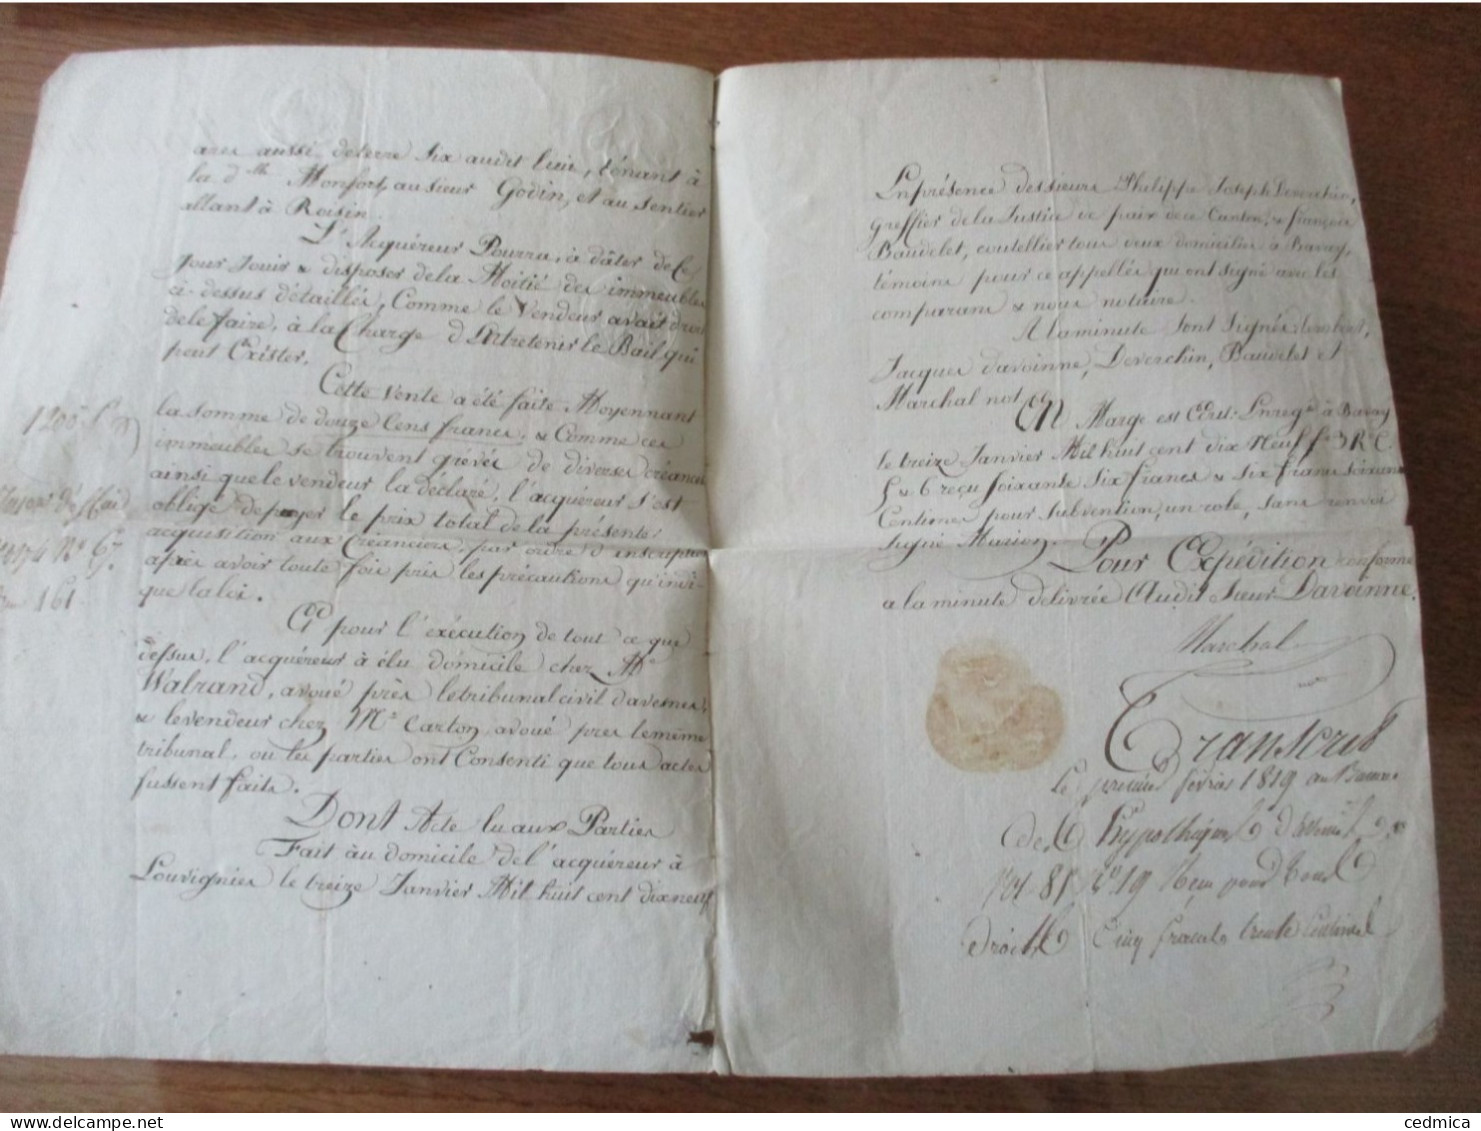 ares aussi de terre Six audit lieu, tenant à
la d.lle Monfort, au sieur Godin, et au Sentier
allant à Roisin.
L'Acquéreur Pourra, à dâter de Ce
jour Jouir & disposer de la Moitié des immeubles
ci-dessus détaillés, Comme le Vendeur avait droit
de le faire, à la Charge d'Entretenir le Bail qui
peut Exister.
Cette Vente a été faite Moyennant
la Somme de douze Cens francs, & Comme ces
immeubles se trouvent grévés de diverses créances
ainsi que le vendeur la déclaré, l'acquéreur s'est
obligé de payer le prix total de la présente
acquisition aux Créanciers, par ordre d'inscription
après avoir toute fois pris les précautions qu'indi-
que la loi.
Et pour l'exécution de tout ce que
dessus, l'acquéreur à élu domicile chez Me
Walrand, avoué près le tribunal civil d'avesnes,
& le vendeur chez Me Carton, avoué près le même
tribunal, où les parties ont Consenti que tous actes
fussent faits.
Dont Acte lu aux Parties
Fait au domicile de l'acquéreur à
Louvignies le treize Janvier Mil huit cent dix neuf
1200 f
No 67
161
En présence des sieurs Philippe Joseph Deverchin,
Greffier de la Justice de paix de ce Canton, & françois
Baudelet, coutellier tous deux domiciliés à Bavay,
témoins pour ce appellés qui ont signé avec les
comparans & nous notaire.
A la minute sont Signés
Jacques davoinne, Deverchin, Baudelet et
Marchal not.re
En Marge est Ecrit: Enreg.é à Bavay
le treize Janvier Mil huit cent dix Neuf f.o 3 R.o C.
5 & 6 reçu Soixante Six francs & Six francs Soixante
Centimes pour subvention, un role, sans renvoi
Signé Marion.
Pour Expédition conforme
a la minute délivrée Audit Sieur Davoinne.
Marchal
Transcrit
Le premier février 1819 au Bureau
des hypothèques
Vol. 81 No 19 Reçu pour tout
droit Cinq francs trente Centimes
cedmica